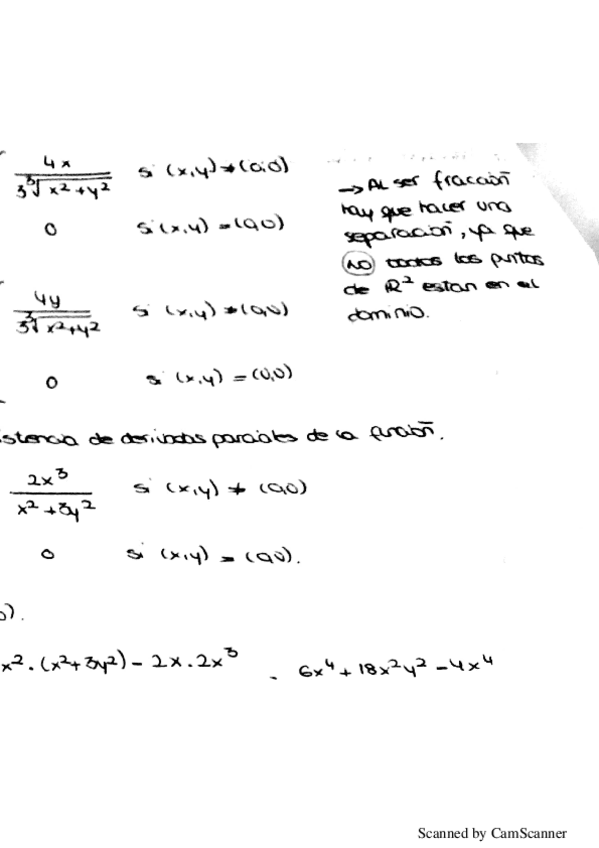 4x / 3∛x²+y² si (x,y) ≠ (0,0)
0 si (x,y) = (0,0)
→ AL ser fracción
hay que hacer una
separación, ya que
NO todos los puntos
de R² estan en el
dominio.
4y / 3∛x²+y² si (x,y) ≠ (0,0)
0 si (x,y) = (0,0)
istencia de derivadas parciales de la función.
2x³ / x²+3y² si (x,y) ≠ (0,0)
0 si (x,y) = (0,0).
).
x². (x²+3y²) - 2x.2x³ 6x⁴ + 18x²y² - 4x⁴
Scanned by CamScanner